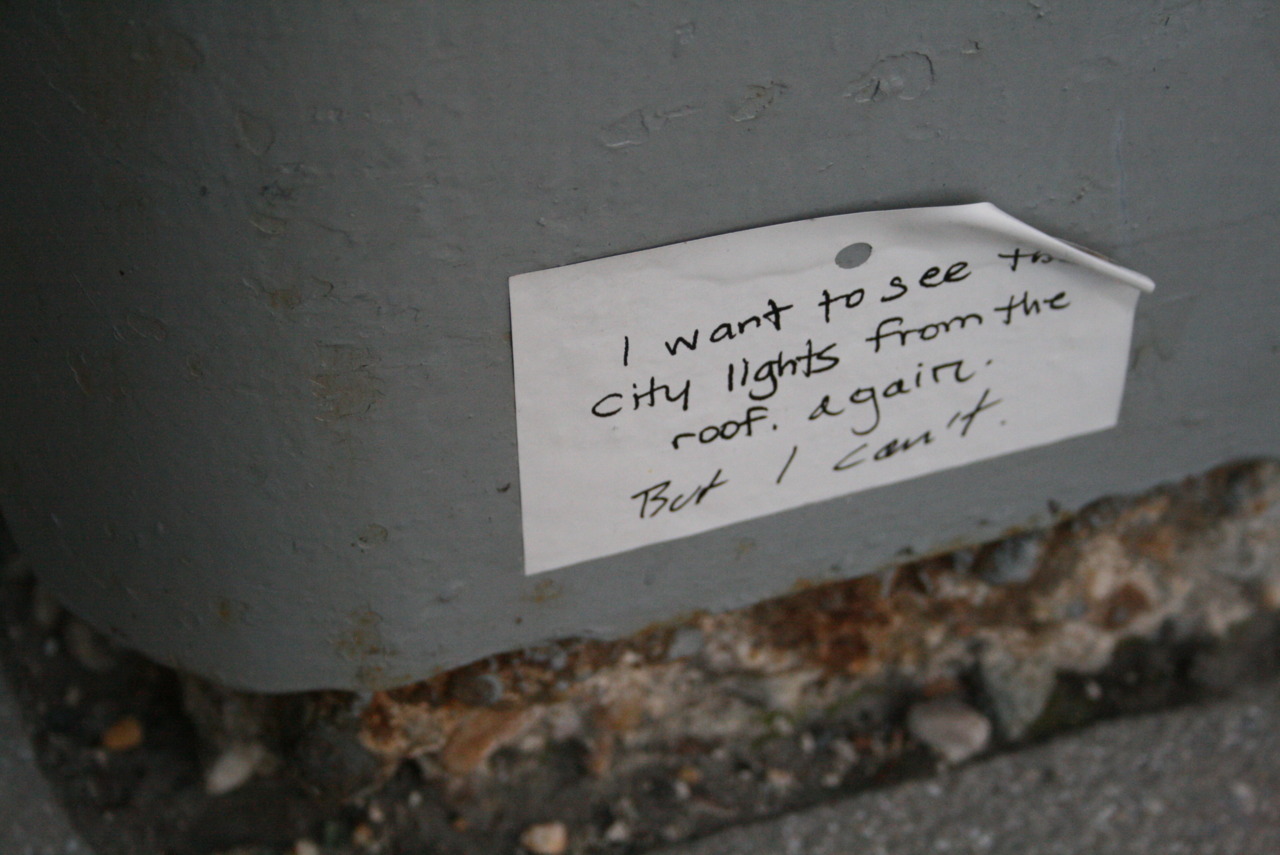 I want to see the
city lights from the
roof. again.
But I can't.